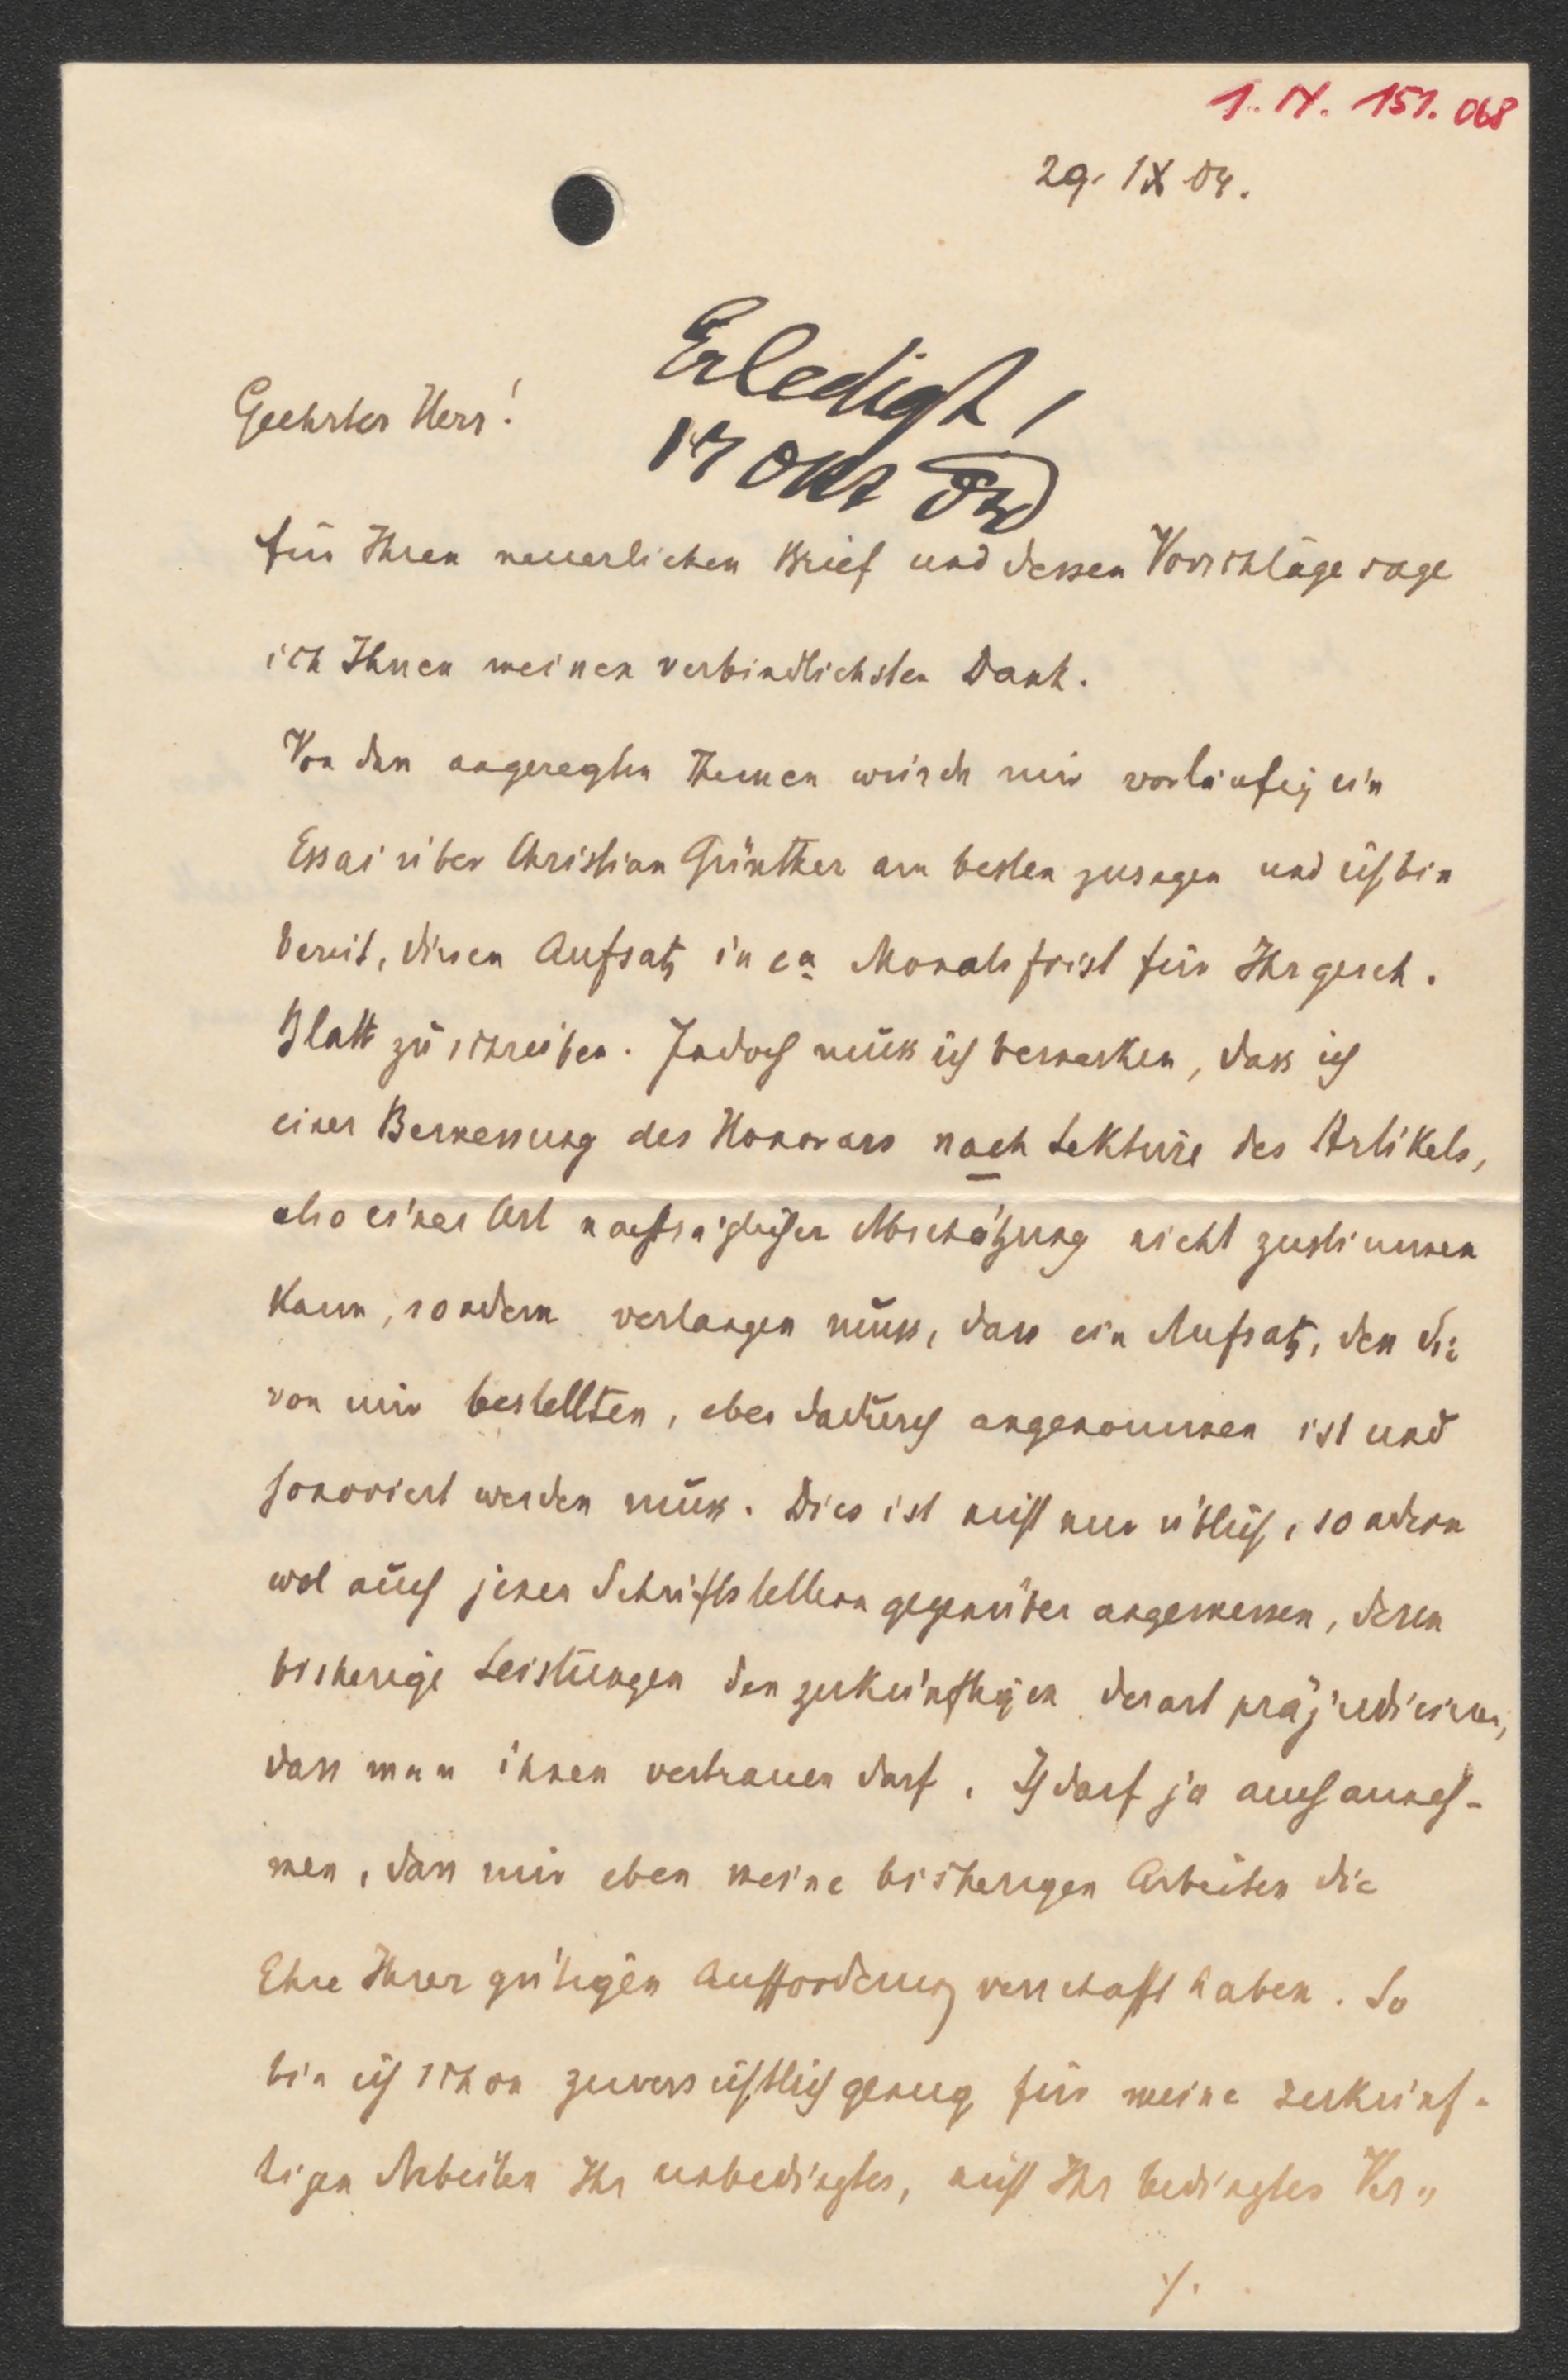 1. IV. 151. 068
29. IX 04.
Erledigt!
17 Okt
Geehrter Herr!
für Ihren neuerlichen Brief und dessen Vorschläge sage
ich Ihnen meinen verbindlichsten Dank.
Von den angeregten Themen würde mir vorläufig ein
Essai über Christian Günther am besten zusagen und ich bin
bereit, diesen Aufsatz in ca Monatsfrist für Ihr gesch.
Blatt zu schreiben. Jedoch muss ich bemerken, dass ich
einer Bemessung des Honorars nach Lektüre des Artikels,
also einer Art nachträglicher Abschätzung nicht zustimmen
kann, sondern verlangen muss, dass ein Aufsatz, den Sie
von mir bestellten, eben dadurch angenommen ist und
honoriert werden muss. Dies ist nicht nur üblich, sondern
wol auch jenen Schriftstellern gegenüber angemessen, deren
bisherige Leistungen den zukünftigen derart präjudicieren,
dass man ihnen vertrauen darf. Ich darf ja auch anneh-
men, dass mir eben meine bisherigen Arbeiten die
Ehre Ihrer gütigen Aufforderung verschafft haben. So
bin ich schon zuversichtlich genug für meine zukünf-
tigen Arbeiten Ihr unbedingtes, nicht Ihr bedingtes Ver„
./.